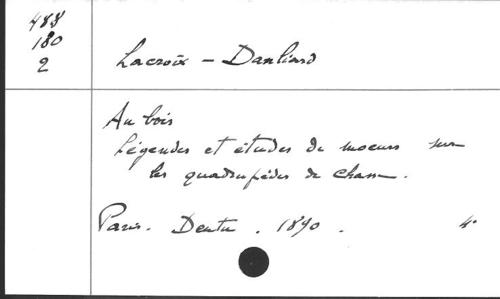 488
180
2
Lacroix - Danliard
Au bois
Légendes et études de moeurs sur
les quadrupèdes de chasse.
Paris. Dentu. 1890.
4°